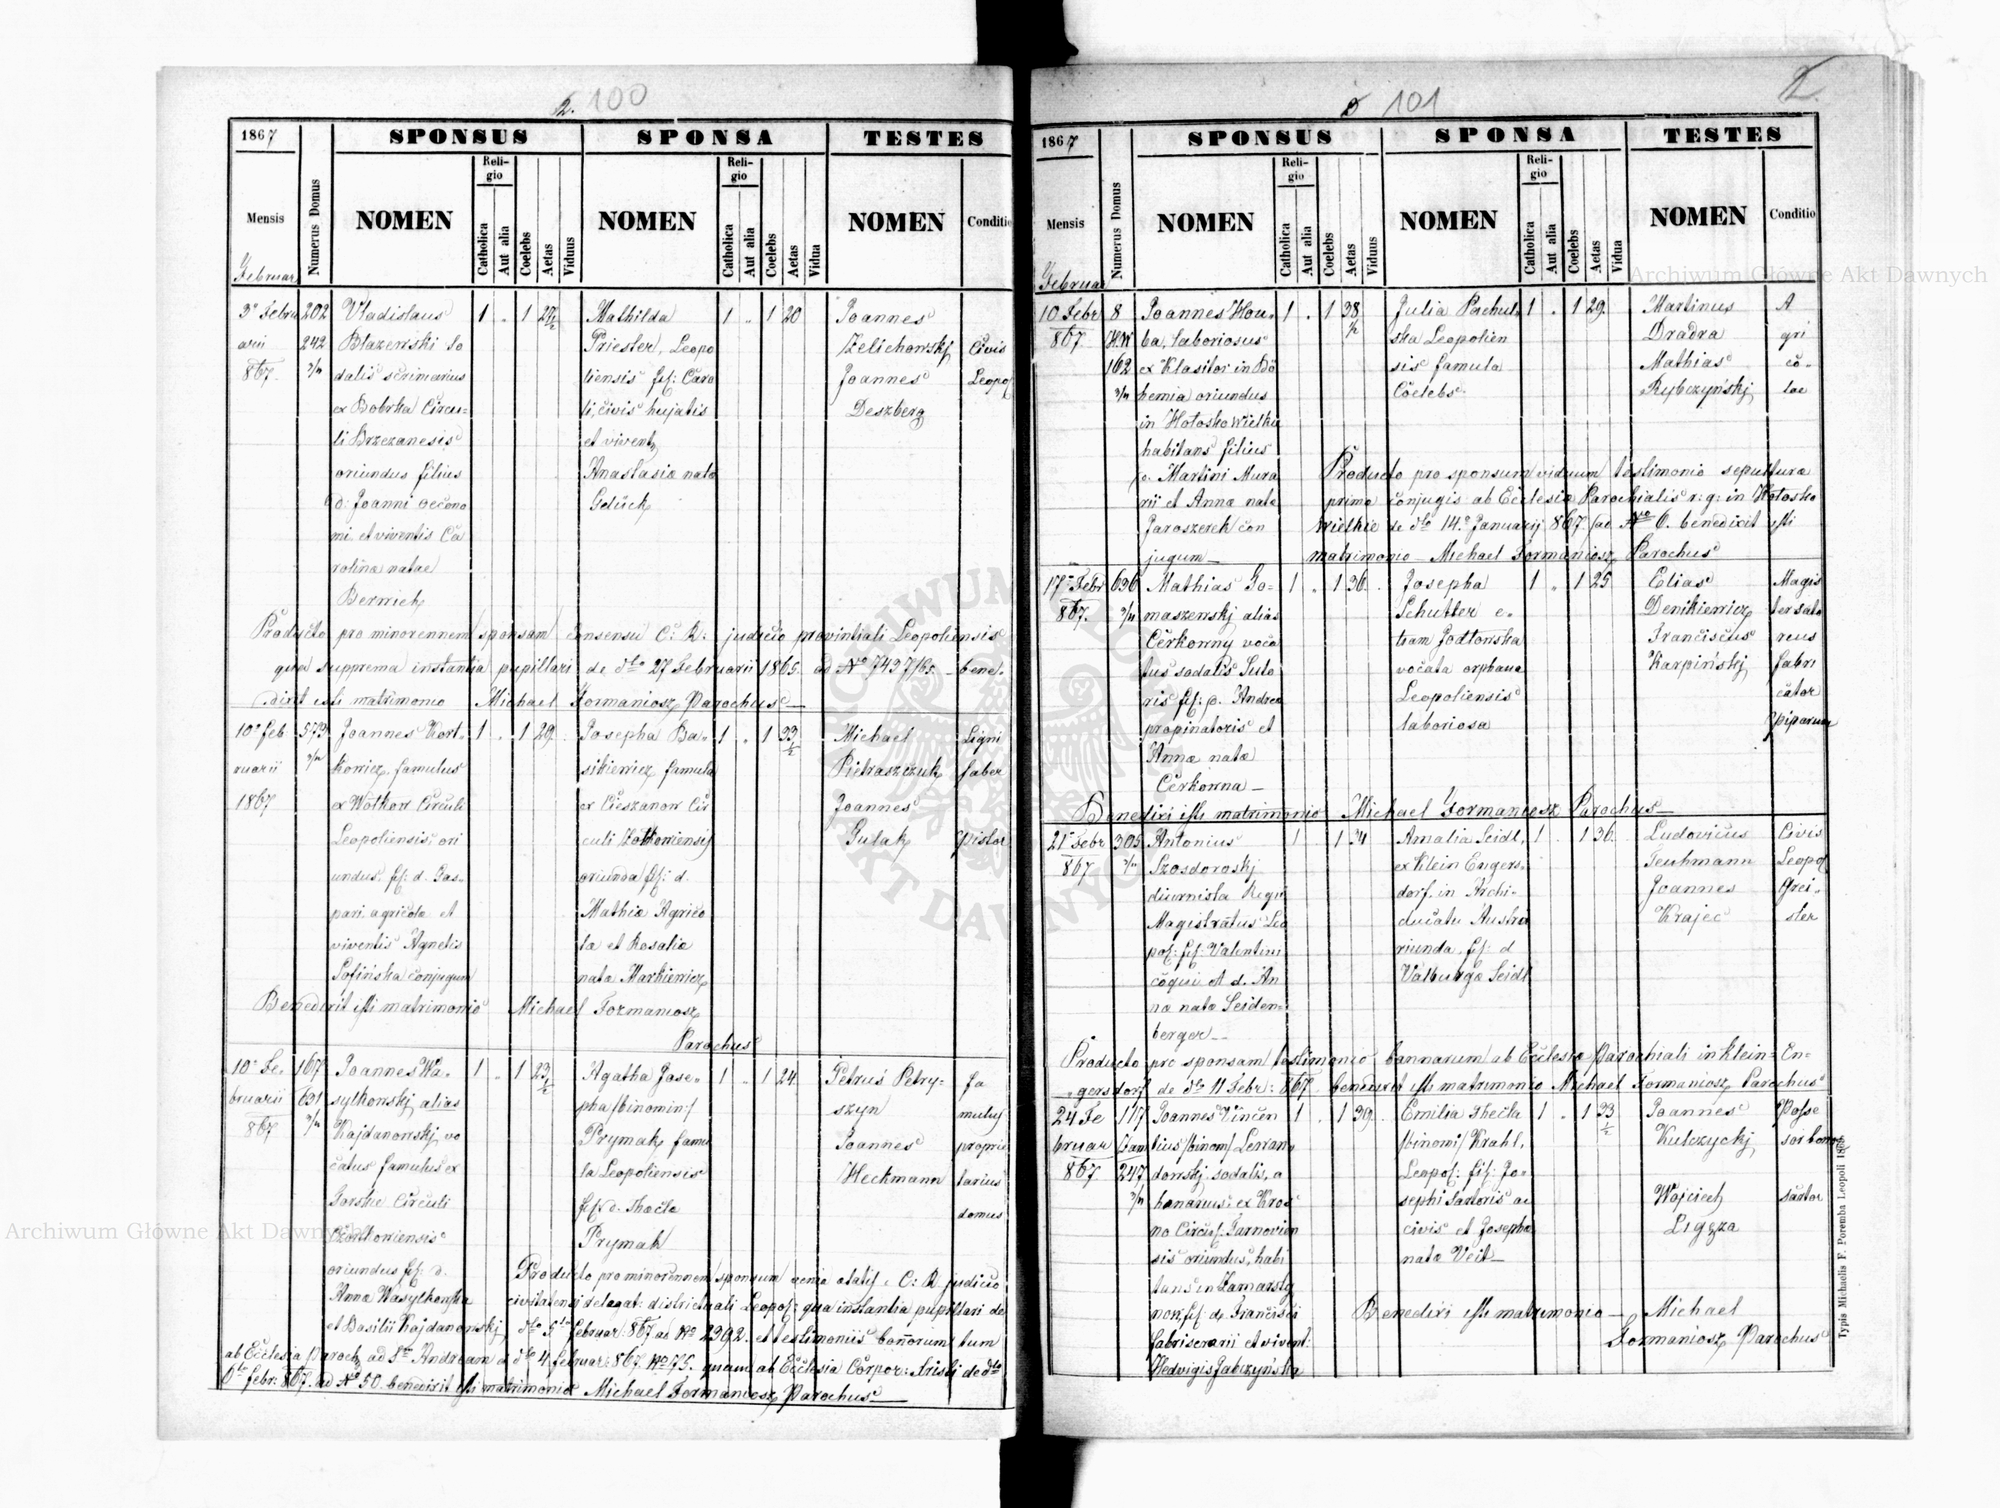 2. 100
1867
SPONSUS
SPONSA
TESTES
Mensis
Numerus Domus
NOMEN
Religio
Catholica
Aut alia
Coelebs
Aetas
Viduus
NOMEN
Religio
Catholica
Aut alia
Coelebs
Aetas
Vidua
NOMEN
Conditio
Februar
3 Febru
arii
867.
202
242
3/m
Vladislaus
Błazewski so
dalis scriniarius
ex Bobrka Circu-
li Brzezanesis
oriundus filius
d: Joanni oecono
mi et viventis Ca
rolinae natae
Berwich
1 . 1 27 1/2
Mathilda
Priester, Leopo
liensis fil: Caro
li, civis hujatis
et vivent
Anastasia nata
Gduck
1 . 1 20
Joannes
Zelichowski
Joannes
Deszberg
Civis
Leopol
Producto pro minorennem sponsam consensu C: R: judicio provintiali Leopoliensis
qua supprema instantia pupillari de dto 27 Februarii 1865. ad No 7437/65. bene-
dixit isti matrimonio Michael Formaniosz Parochus
10 Feb
ruarii
1867
573
3/m
Joannes Kort-
kowicz famulus
ex Wołkow Circuli
Leopoliensis ori
undus. fil: d. Gas-
pari agricola et
viventis Agnetis
Łosińska conjugum
1 . 1 29
Josepha Ba-
sikiewicz famula
ex Cieszanow Cir
culi Żołkowiensis
oriunda fil: d.
Mathia Agrico
la et Rosalia
nata Markiewicz
1 . 1 33 1/2
Michael
Pietraszczuk
Joannes
Gulak
Ligni
faber
Pistor
Benedixit isti matrimonio Michael Formaniosz
Parochus
10 Fe-
bruarii
867
167
631
3/m
Joannes Wa-
sylkowskj alias
Kajdanowskj vo
catus famulus ex
Gorskie Circuli
Żołkowiensis
oriundus fil: d.
Anna Wasylkowska
et Basilii Kajdanowskj
1 . 1 23 1/2
Agatha Jose-
pha /binomin:/
Prymak famu
la Leopoliensis
fil: d. Thecla
Prymak
1 . 1 24
Petrus Petry-
szyn
Joannes
Heckmann
fa
mulus
proprie
tarius
domus
Producto pro minorennem sponsum venia aetatis C: R judicio
civitatensi delegat: districtuali Leopol: qua instantia pupillari de
dto 5 Februar: 867 ad No 2392. et testimoniis bannorum tum
ab Ecclesia Paroch: ad Stm Andream d dto 4 Februar: 867. No 75. quam ab Ecclesia Corpor: Xristi de dto
6 Febr: 867. ad No 50. benedixit isti matrimonio Michael Formaniosz Parochus
101
2
1867
SPONSUS
SPONSA
TESTES
Mensis
Numerus Domus
NOMEN
Religio
Catholica
Aut alia
Coelebs
Aetas
Viduus
NOMEN
Religio
Catholica
Aut alia
Coelebs
Aetas
Vidua
NOMEN
Conditio
Februar
10 Febr
867
8
H.W
162
3/m
Joannes Hou-
ba, laboriosus
ex Klasitor in Bo
hemia oriundus
in Hołosko wielkie
habitans filius
p: Martini Mura
rii et Anna nata
Jaroszerek con
jugum
1 . 1 38 1/2
Julia Pochul-
ska Leopolien
sis famula
Coelebs
1 . 1 29.
Martinus
Dradra
Mathias
Rybczyńskj
A
gri
co-
lae
Producto pro sponsum viduum testimonio sepultura
prima conjugis ab Ecclesia Parochialis r: g: in Hołosko
wielkie de dto 14 Januarij 867. ad No 6. benedixit isti
matrimonio Michael Formaniosz Parochus
17 Febr
867.
636
3/m
Mathias To-
maszewskj alias
Cerkonny voca
tus sodalis Suto
ris fil: p. Andrea
propinatoris et
Anna nata
Cerkowna
1 . 1 36
Josepha
Schutter e-
tiam Jodłowska
vocata orphana
Leopoliensis
laboriosa
1 . 1 25
Elias
Denikiewicz
Franciscus
Karpińskj
Magis
ter sato
reus
fabri
cator
Piparum
Benedixi isti matrimonio Michael Formaniosz Parochus
21 Febr
867
305
3/m
Antonius
Szosdoroskj
diurnista Regii
Magistratus Leo
pol: fil: Valentini
coqui et d. An
na nata Seiden-
berger
1 . 1 34
Amalia Seidl,
ex Klein Engers-
dorf. in Archi-
ducatu Austria
riunda. fil: d
Valburga Seidl
1 . 1 36
Ludovicus
Teuhmann
Joannes
Krajec
Civis
Leopol
Grei-
sler
Producto pro sponsam testimonio bannarum ab Ecclesia Parochiali in Klein- En-
gersdorf de dto 11 Febr: 867. benedixit isti matrimonio Michael Formaniosz Parochus
24 Fe
bruar
867.
117
247
3/m
Joannes Vincen
tius /binom/ Lewan
dowskj sodalis, a
henarius ex Kros
no Circul. Tarnovien
sis oriundus, habi
tans in Zamarsty
now, fil: d. Francisci
fabriserarii et vivent.
Hedvigis Jabczyńska
1 . 1 39.
Emilia Thecla
/binomi/ Krahl,
Leopol: fil: Jo-
sephi sartoris ac
civis et Josepha
nata Veit
1 . 1 33 1/2
Joannes
Kulczyckj
Wojciech
Ligęza
Posse
sor bono
sartor
Benedixi isti matrimonio Michael
Formaniosz Parochus
Typis Michaelis F. Poremba Leopoli 186
Archiwum Główne Akt Dawnych
Archiwum Główne Akt Dawnych
ARCHIWUM GŁÓWNE AKT DAWNYCH